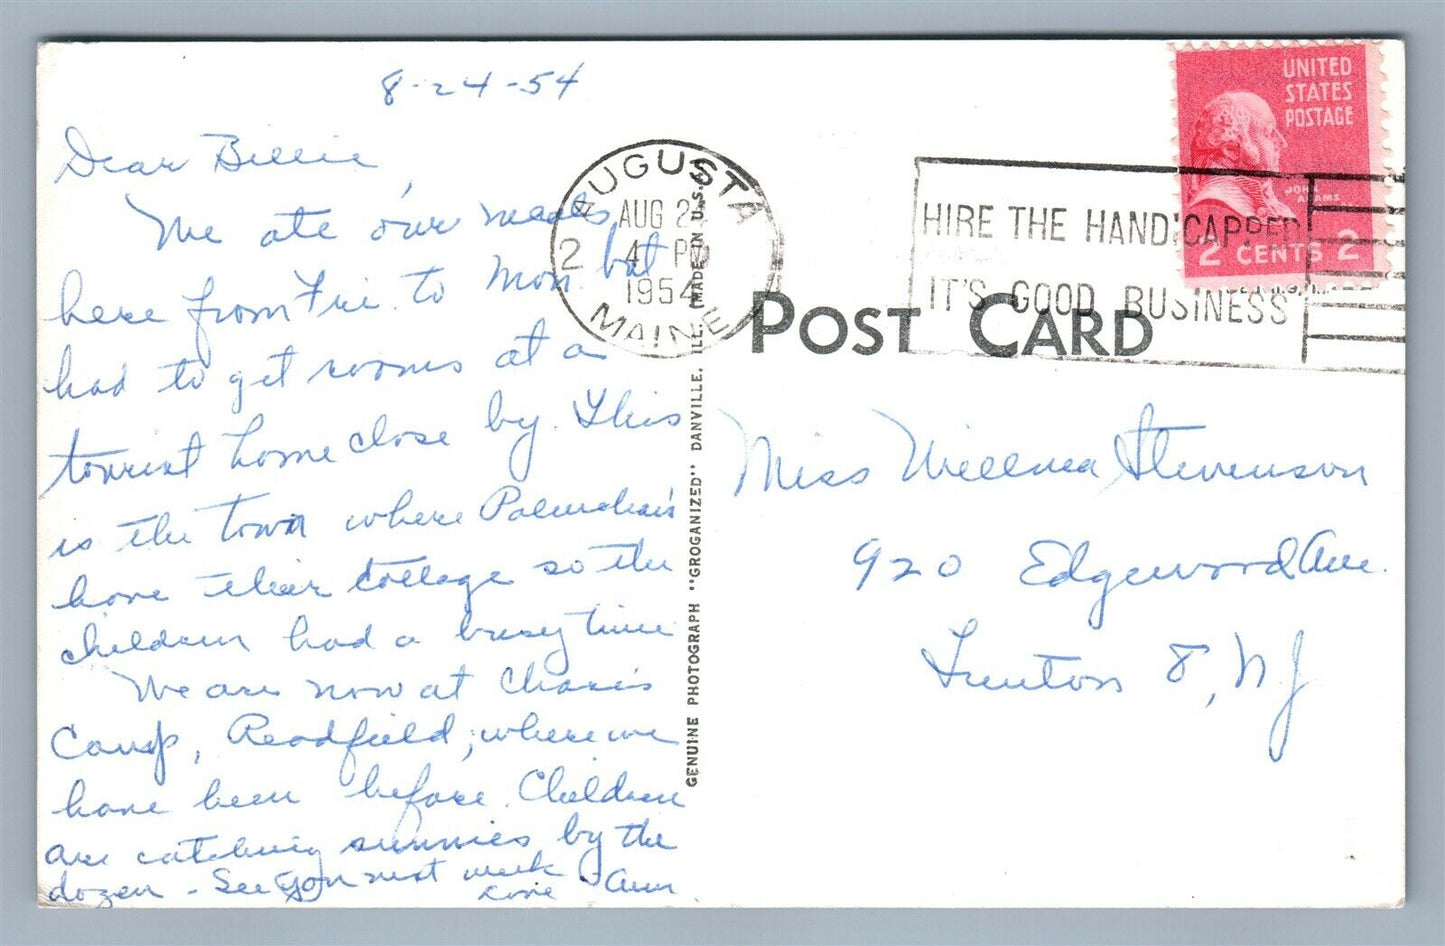 8-24-54
Dear Billie,
We ate our meals
here from Fri. to Mon. but
had to get rooms at a
tourist home close by. This
is the town where
have their cottage so the
children had a busy time
We are now at Chase's
Camp, Readfield, where we
have been before. Children
are catching sunnies by the
dozen - See you next week
Love - Ann
AUGUSTA
AUG 24
4 PM
1954
MAINE
2
HIRE THE HANDICAPPED
IT'S GOOD BUSINESS
UNITED
STATES
POSTAGE
JOHN
ADAMS
2 CENTS 2
POST CARD
GENUINE PHOTOGRAPH "GROGANIZED" DANVILLE, ILL. (MADE IN U.S.A.)
Miss Willma Stevenson
920 Edgewood Ave.
Trenton 8, NJ